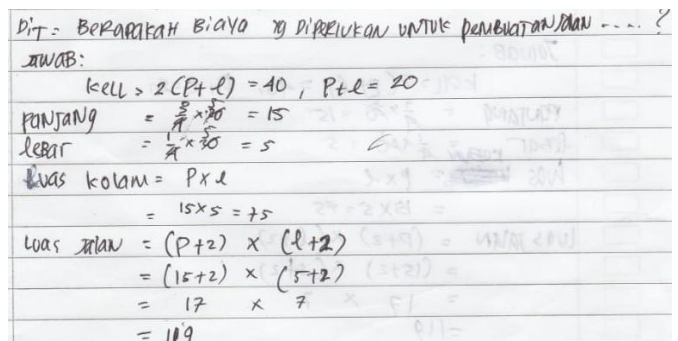 Dit = Berapakah Biaya yg Diperlukan untuk pembuatan jalan .... ?
Jawab:
Kell > 2 (P+l) = 40 , P+l = 20
Panjang = 3/4 x 20 5 = 15
lebar = 1/4 x 20 5 = 5
Luas kolam = P x l
= 15 x 5 = 75
Luas jalan = (P+2) x (l+2)
= (15+2) x (5+2)
= 17 x 7
= 119